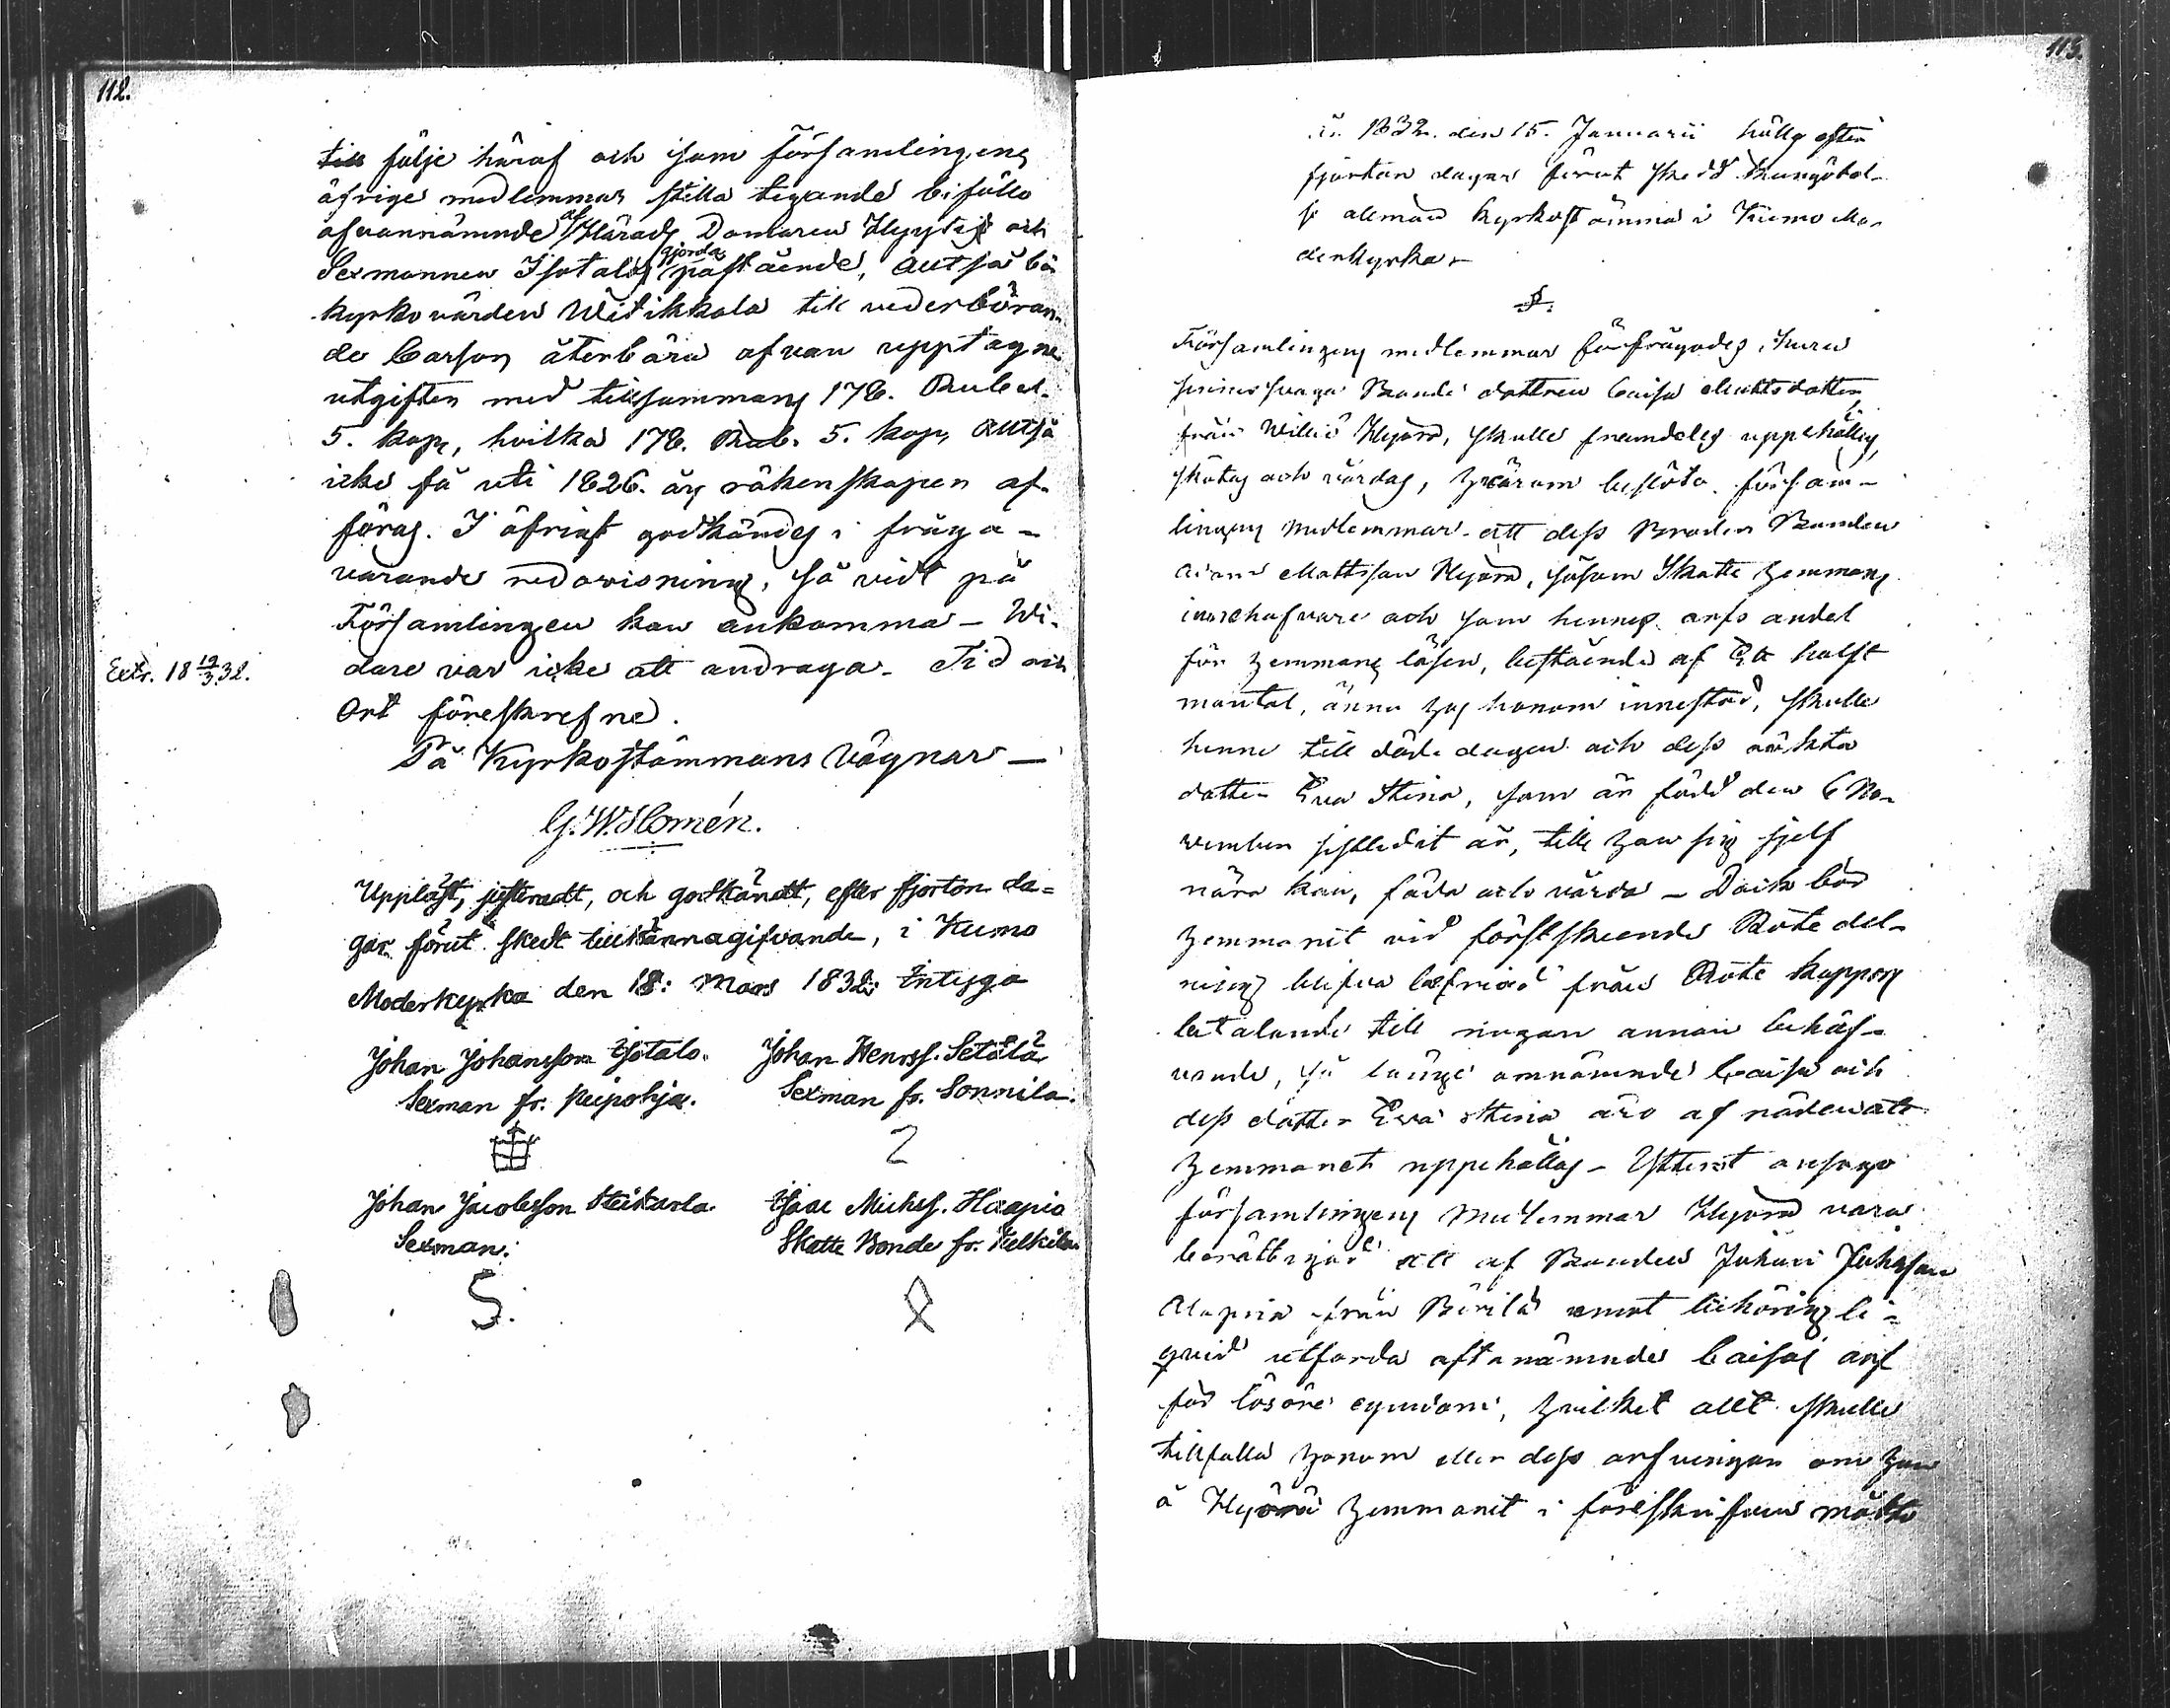 112.
till följe häraf och som Församlingens
öfrige medlemmar stilla tigande biföllo
ofvannämnde af Härads Domaren Hyytiä och
Sexmannen Isotalos gjorda påstående, altså bör
kyrkovärden Witikkala till vederböran-
de Casson återbära ofvan upptagne
utgiften med tillsammans 178. Rubel.
5. kop, hvilka 178. Rub. 5. kop, altså
icke få uti 1826. års räkenskapen af-
föras. I öfrigt godkändes i fråga-
varande redovisning, så vidt på
Församlingen kan ankomma – Wi-
dare var icke att andraga. Tid och
Ort föreskrefne.
Extr. 18 19/3 32.
På Kyrkostämmans Vägnar —
G. W. Homén.
Uppläst, justeradt, och godkändt, efter fjorton da=
gar förut skedt tillkännagifvande, i Kumo
Moderkyrka den 18: Mars 1832: Intyga
Johan Johansson Isotalo. Johan Henrss. Setälä
Sexman fr. Peipohja. Sexman fr. Sonnila.
2
Johan Jacobsson Steikarla. Isaac Michss. Haapio
Sexman. Skatte Bonde fr. Kelkiläi
S.
113.
år 1832. den 15. Januarii hölls efter
fjorton dagar förut skedd kungörel-
se allmän kyrkostämma i Kumo Mo-
derkyrka –
§.
Församlingens medlemmar förfrågades, huru
sinnes svaga Bonde dottren Caisa Mattsdotter
från Willio Hyörä, skulle framdeles uppehållas,
skötas och vårdas, hvarom beslöto församm-
lingens medlemmar att dess Broder Bonden
Mattsson Hyörä, såsom Skatte hemmans
innehafvare och som hennes arfs andel
för hemmans lösen, bestående af Ett halft
mantal, ännu hos honom innestod, skulle
henne till döde dagen och dess oäkta
dotter Eva Stina, som är född den 6 No-
vember sistledit år, till hon sig sjelf
nära kan, föda och vårda – Dock bör
hemmanet vid förstskeende Rote del-
ning blifva befriad från Rote kappars
betalande till någon annan behöf-
vande, så länge omnämnde Caisa och
dess dotter Eva Stina äro af nödervate
hemmanet uppehållas – Ytterst ansågo
församlingens medlemmar Hyörä vara
berättigad att af Bonden Johan Johsson
från Pirilä emot tillhörig li-
qvid utfordra oftanämnde Caisas arf
för lösöre egendom, hvilket allt skulle
tillfalla honom eller dess arfvingar om hon
å Hyörä hemmanet i föreskrifven måtto